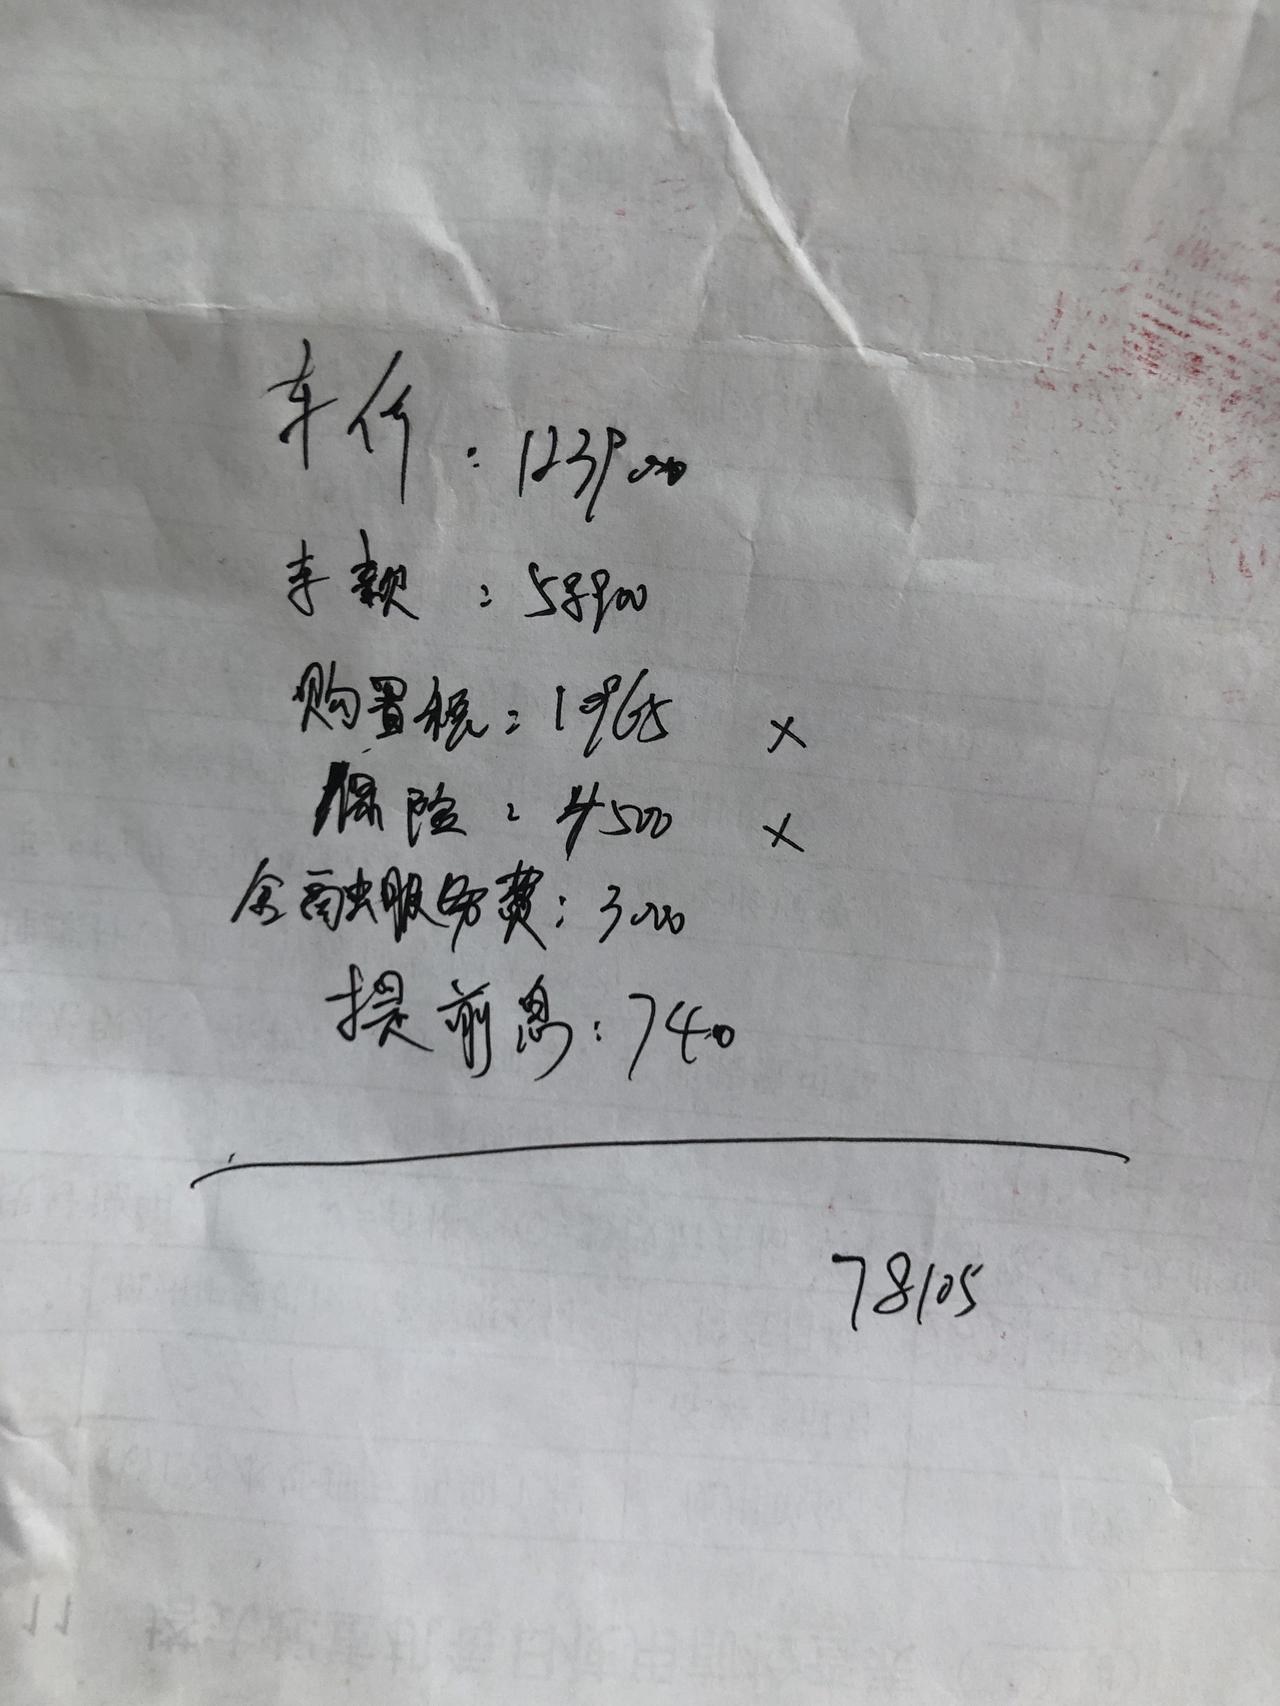 车价：123900
车款：58900
购置税：10965 ×
保险：4500 ×
金融服务费：3000
提前息：740
78105